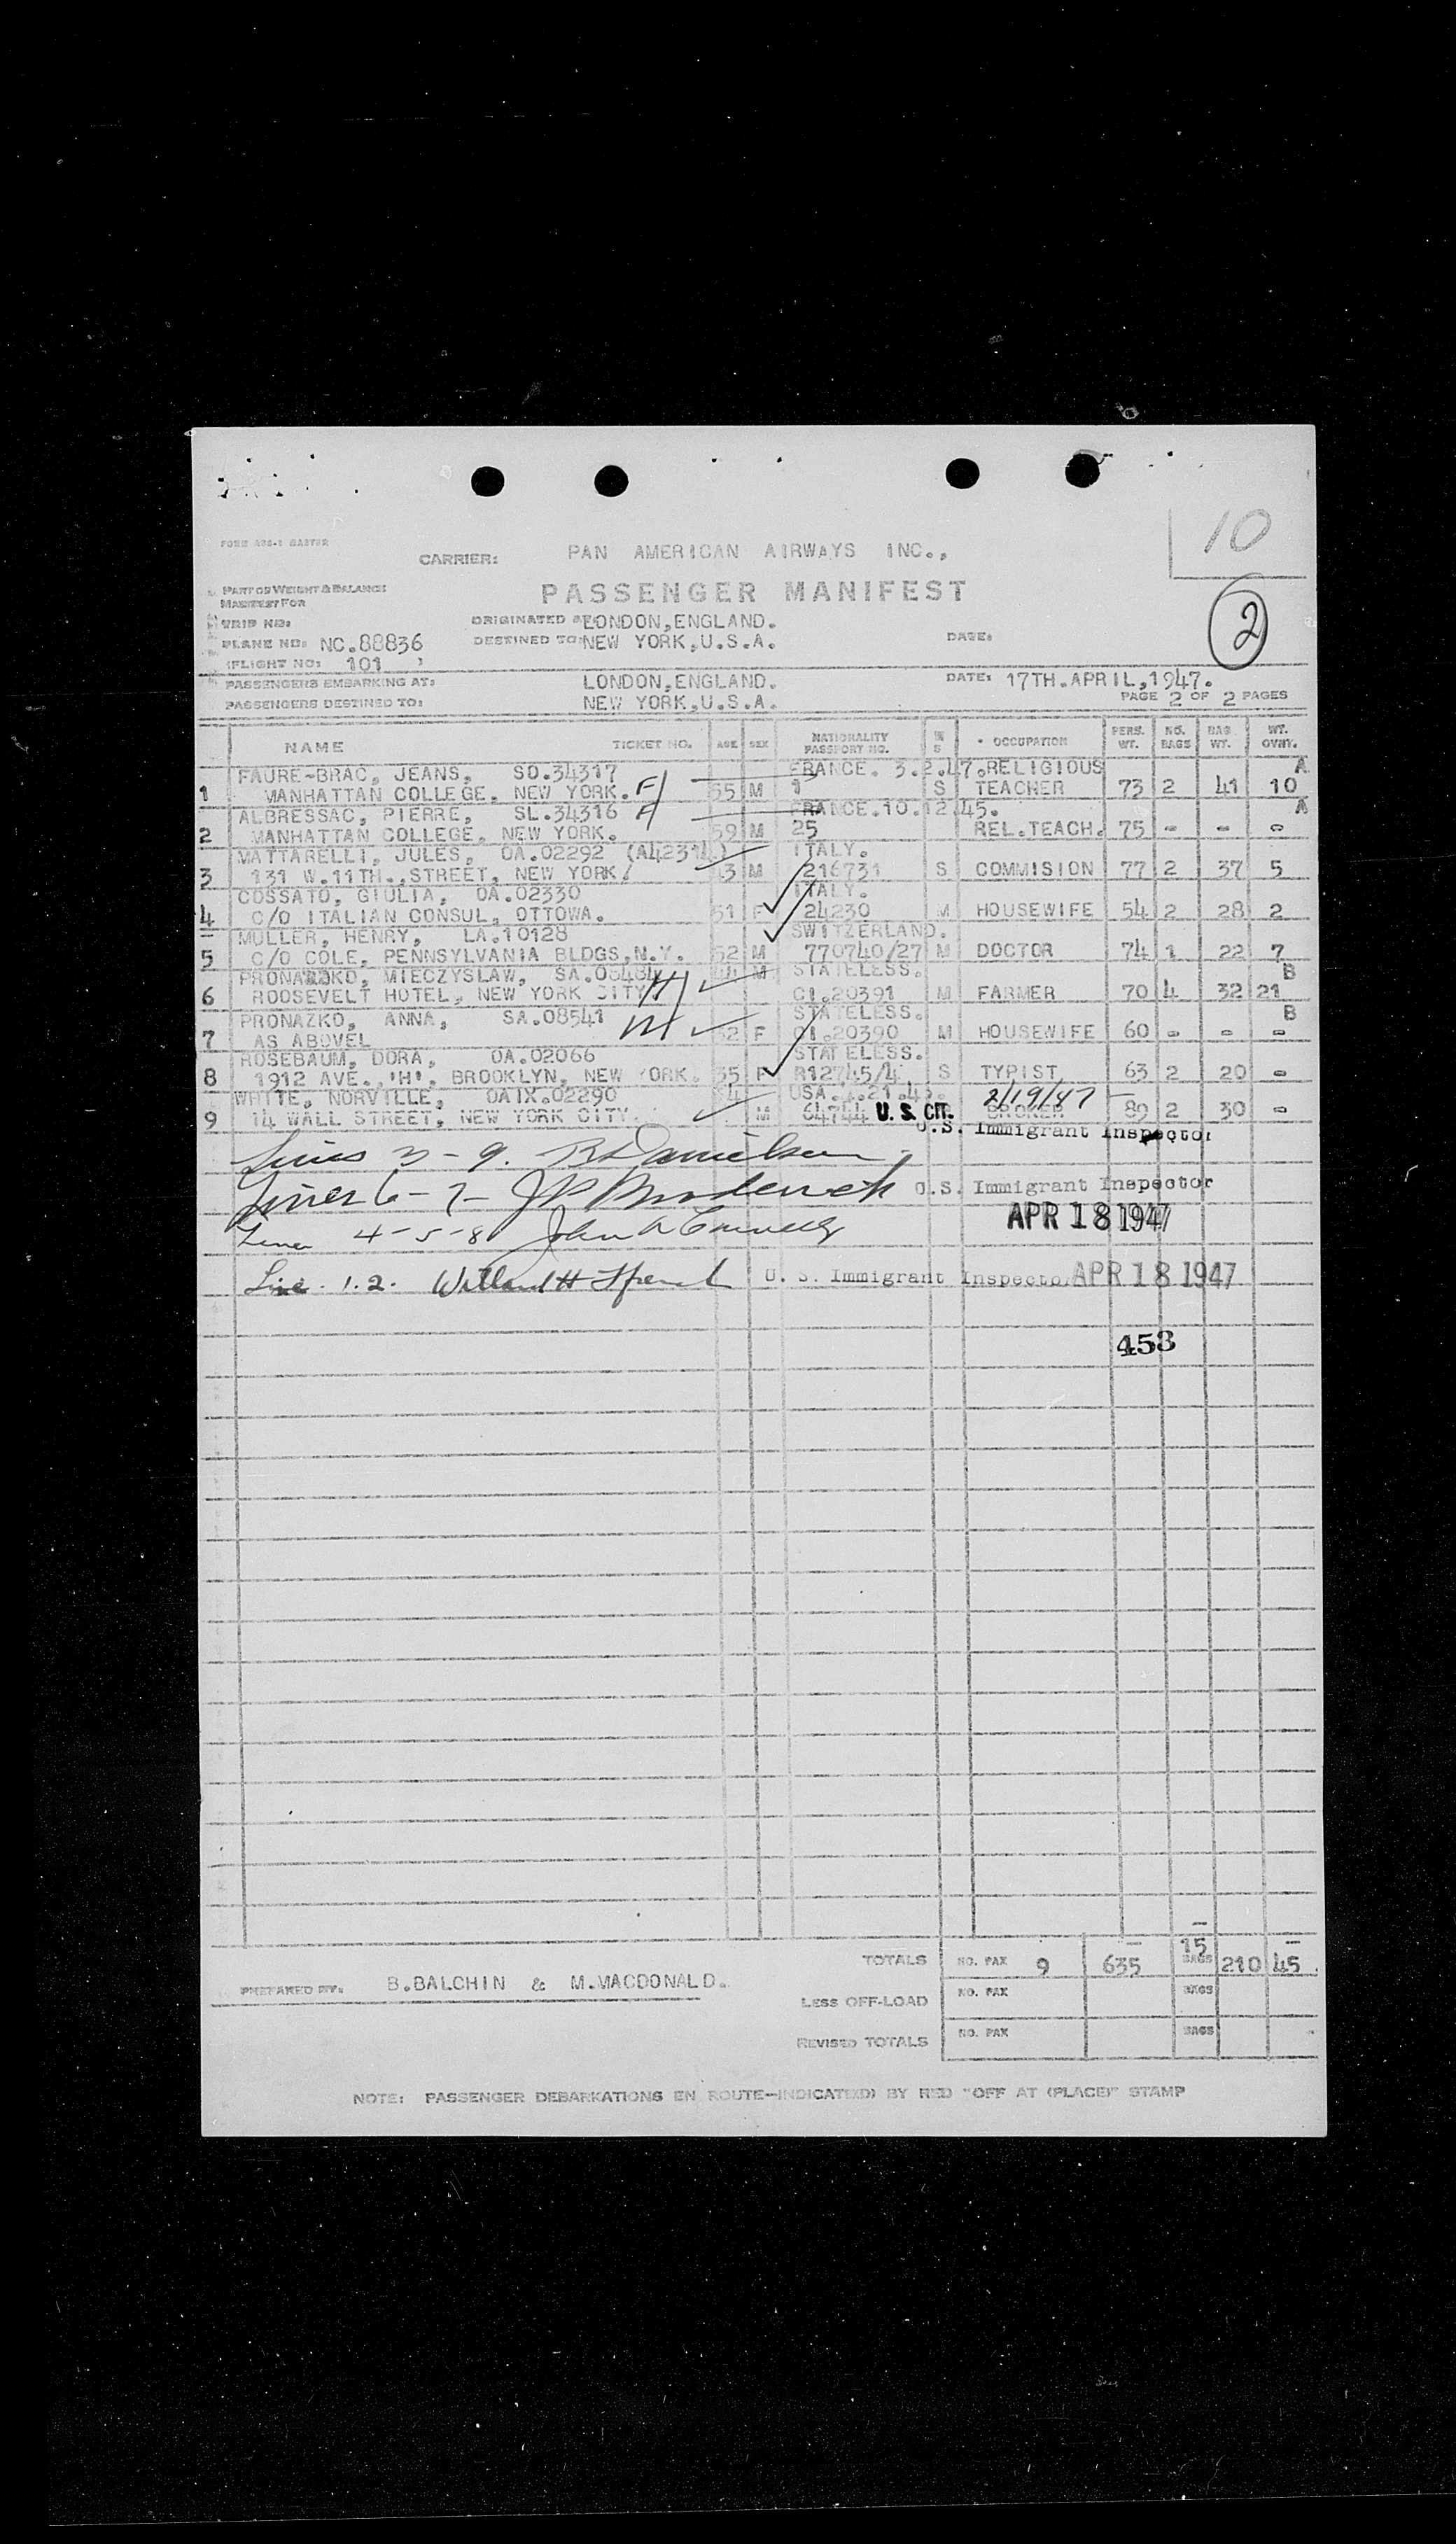 10
FORM
CARRIER: PAN AMERICAN AIRWAYS INC.,
PART OF WEIGHT & BALANCE
MANIFEST FOR
PASSENGER MANIFEST
2
TRIP NO:
ORIGINATED LONDON,ENGLAND.
PLANE NO: NC.88836 DESTINED TO: NEW YORK,U.S.A. DATE:
(FLIGHT NO: 101 )
PASSENGERS EMBARKING AT: LONDON,ENGLAND. DATE: 17TH.APRIL,1947.
PASSENGERS DESTINED TO: NEW YORK,U.S.A. PAGE 2 OF 2 PAGES
NAME TICKET NO. AGE SEX NATIONALITY PASSPORT NO. M S • OCCUPATION PERS. WT. NO. BAGS BAG WT. WT. OVHT.
FAURE-BRAC, JEANS, SO.34317 FRANCE. 3.2.47.RELIGIOUS A
1 MANHATTAN COLLEGE. NEW YORK. 55 M 1 S TEACHER 73 2 41 10
ALBRESSAC, PIERRE, SL.34316 FRANCE.10.12.45. A
2 MANHATTAN COLLEGE, NEW YORK. 59 M 25 REL.TEACH. 75 - - -
MATTARELLI, JULES, OA.02292 ITALY.
3 131 W.11TH.,STREET, NEW YORK 43 M 216731 S COMMISION 77 2 37 5
COSSATO, GIULIA, OA.02330 ITALY.
4 C/O ITALIAN CONSUL, OTTOWA. 51 F 24230 M HOUSEWIFE 54 2 28 2
MULLER, HENRY, LA.10128 SWITZERLAND.
5 C/O COLE, PENNSYLVANIA BLDGS,N.Y. 52 M 770740/27 M DOCTOR 74 1 22 7
MIECZYSLAW, M STATELESS. B
6 ROOSEVELT HOTEL, NEW YORK CITY CI.20391 M FARMER 70 4 32 21
PRONAZKO, ANNA, SA.08541 STATELESS. B
7 AS ABOVEL 52 F CI.20390 M HOUSEWIFE 60 - - -
ROSEBAUM, DORA, OA.02066 STATELESS.
8 1912 AVE.,'H', BROOKLYN, NEW YORK. 35 F R12745/4 S TYPIST 63 2 20 -
WHITE, NORVILLE, OAIX.02290 USA. 2/19/47
9 14 WALL STREET, NEW YORK CITY. M 64744 U. S. CIT. BROKER 89 2 30 -
U.S. Immigrant Inspector
Lines 3 - 9. B Danielsen
Lines 6 - 7 - U.S. Immigrant Inspector
APR 18 1947
4 - 5 - 8 John
Line. 1.2. Willard H U. S. Immigrant Inspector APR 18 1947
453
TOTALS NO. PAX 9 635 15 BAGS 210 45
PREPARED BY: B.BALCHIN & M.MACDONALD.
LESS OFF-LOAD NO. PAX BAGS
REVISED TOTALS NO. PAX BAGS
NOTE: PASSENGER DEBARKATIONS EN ROUTE-INDICATED BY RED "OFF AT (PLACE)" STAMP